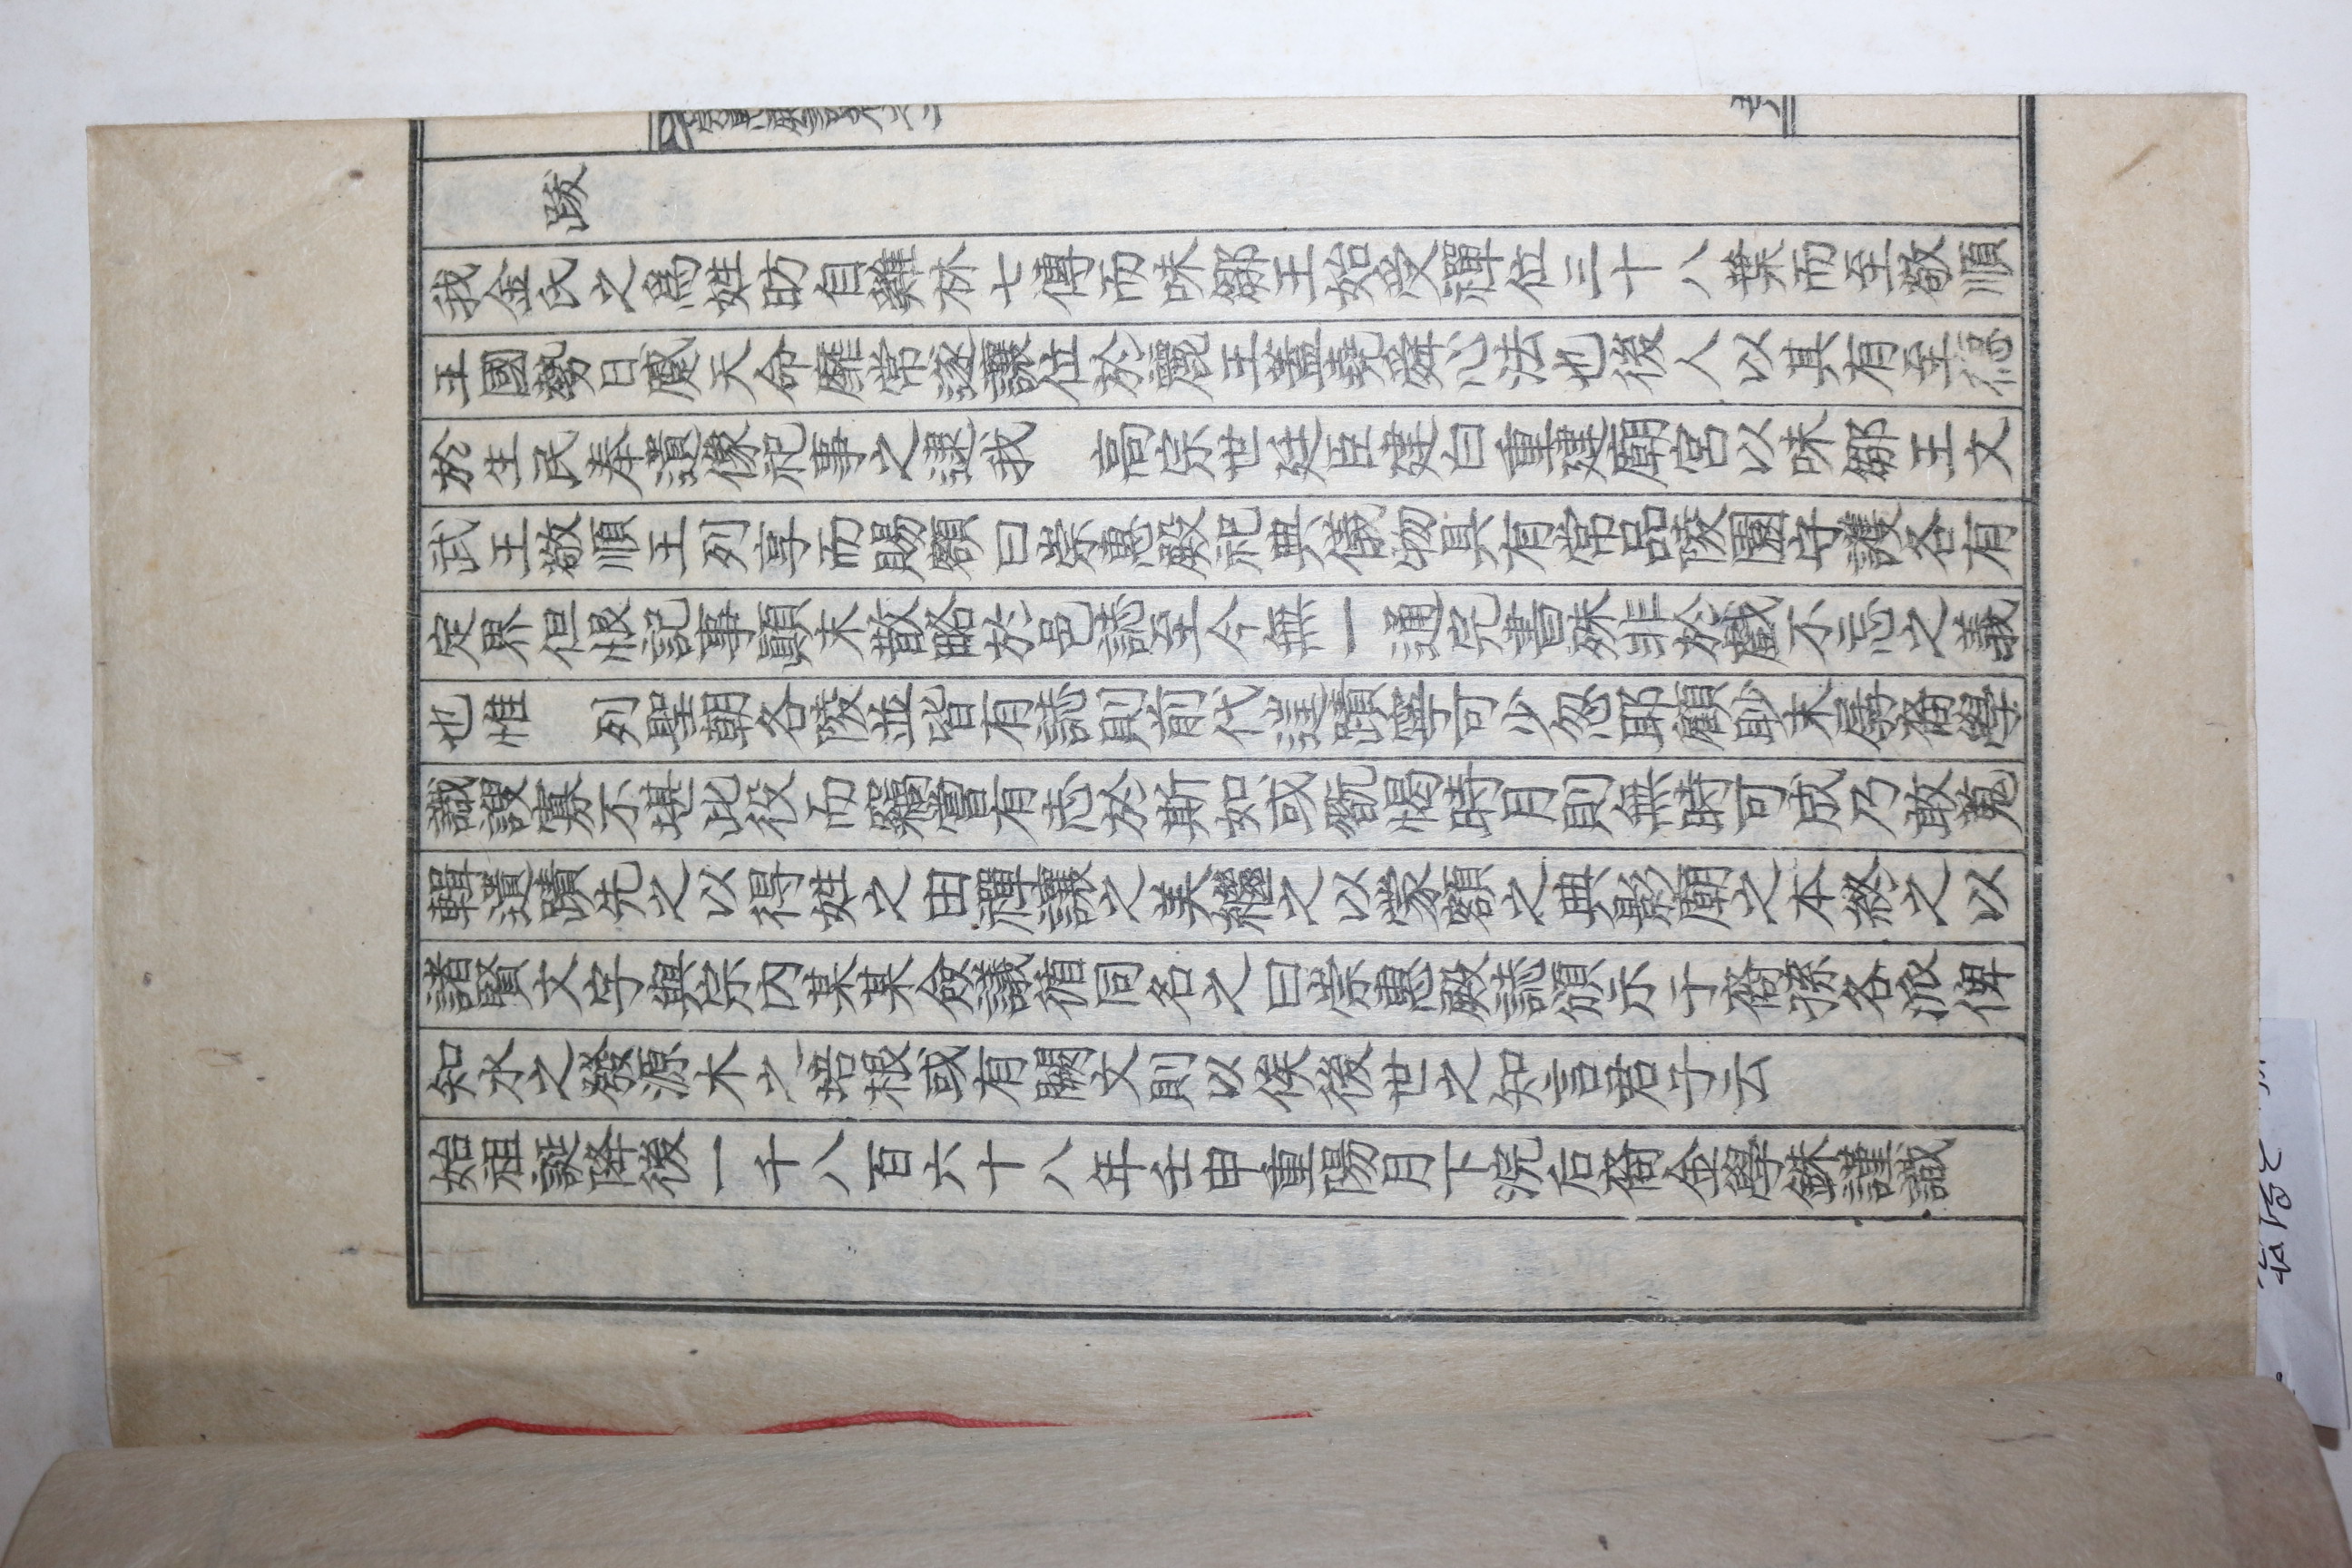 跋
我金氏之爲姓昉自雞林七傳而味鄒王始受禪位三十八葉而至敬順
王國勢日蹙天命靡常遂讓位於麗王蓋堯舜心法也後人以其有至德
於生民奉眞像祀事之逮我 高宗世廷臣建白重建廟宮以味鄒王文
武王敬順王列享而賜額曰崇惠殿祀典儀物具有常品陵園守護各有
定界但恨記事顚末散略於邑誌至今無一通完書殊非於戱不忘之義
也惟 列聖朝各陵並皆有誌則前代遺蹟寧可少忽耶顧眇末孱裔學
識謏寡不堪此役而竊嘗有志於斯如或翫愒時月則無時可成乃敢蒐
輯遺蹟先之以得姓之由禪讓之美繼之以蒙額之典影廟之本終之以
諸賢文字與宗內某某僉議詢同名之曰崇惠殿誌頒示子裔孫各派俾
知水之發源木之培根或有闕文則以俟後世之知言君子云
始祖誕降後一千八百六十八年壬申重陽月下浣后裔金學銖謹識